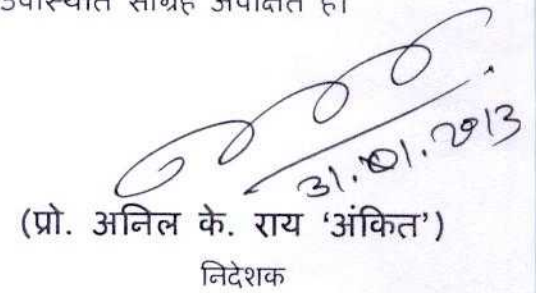 उपस्थिति साग्रह अपेक्षित है।
31.01.2013
(प्रो. अनिल के. राय ‘अंकित’)
निदेशक